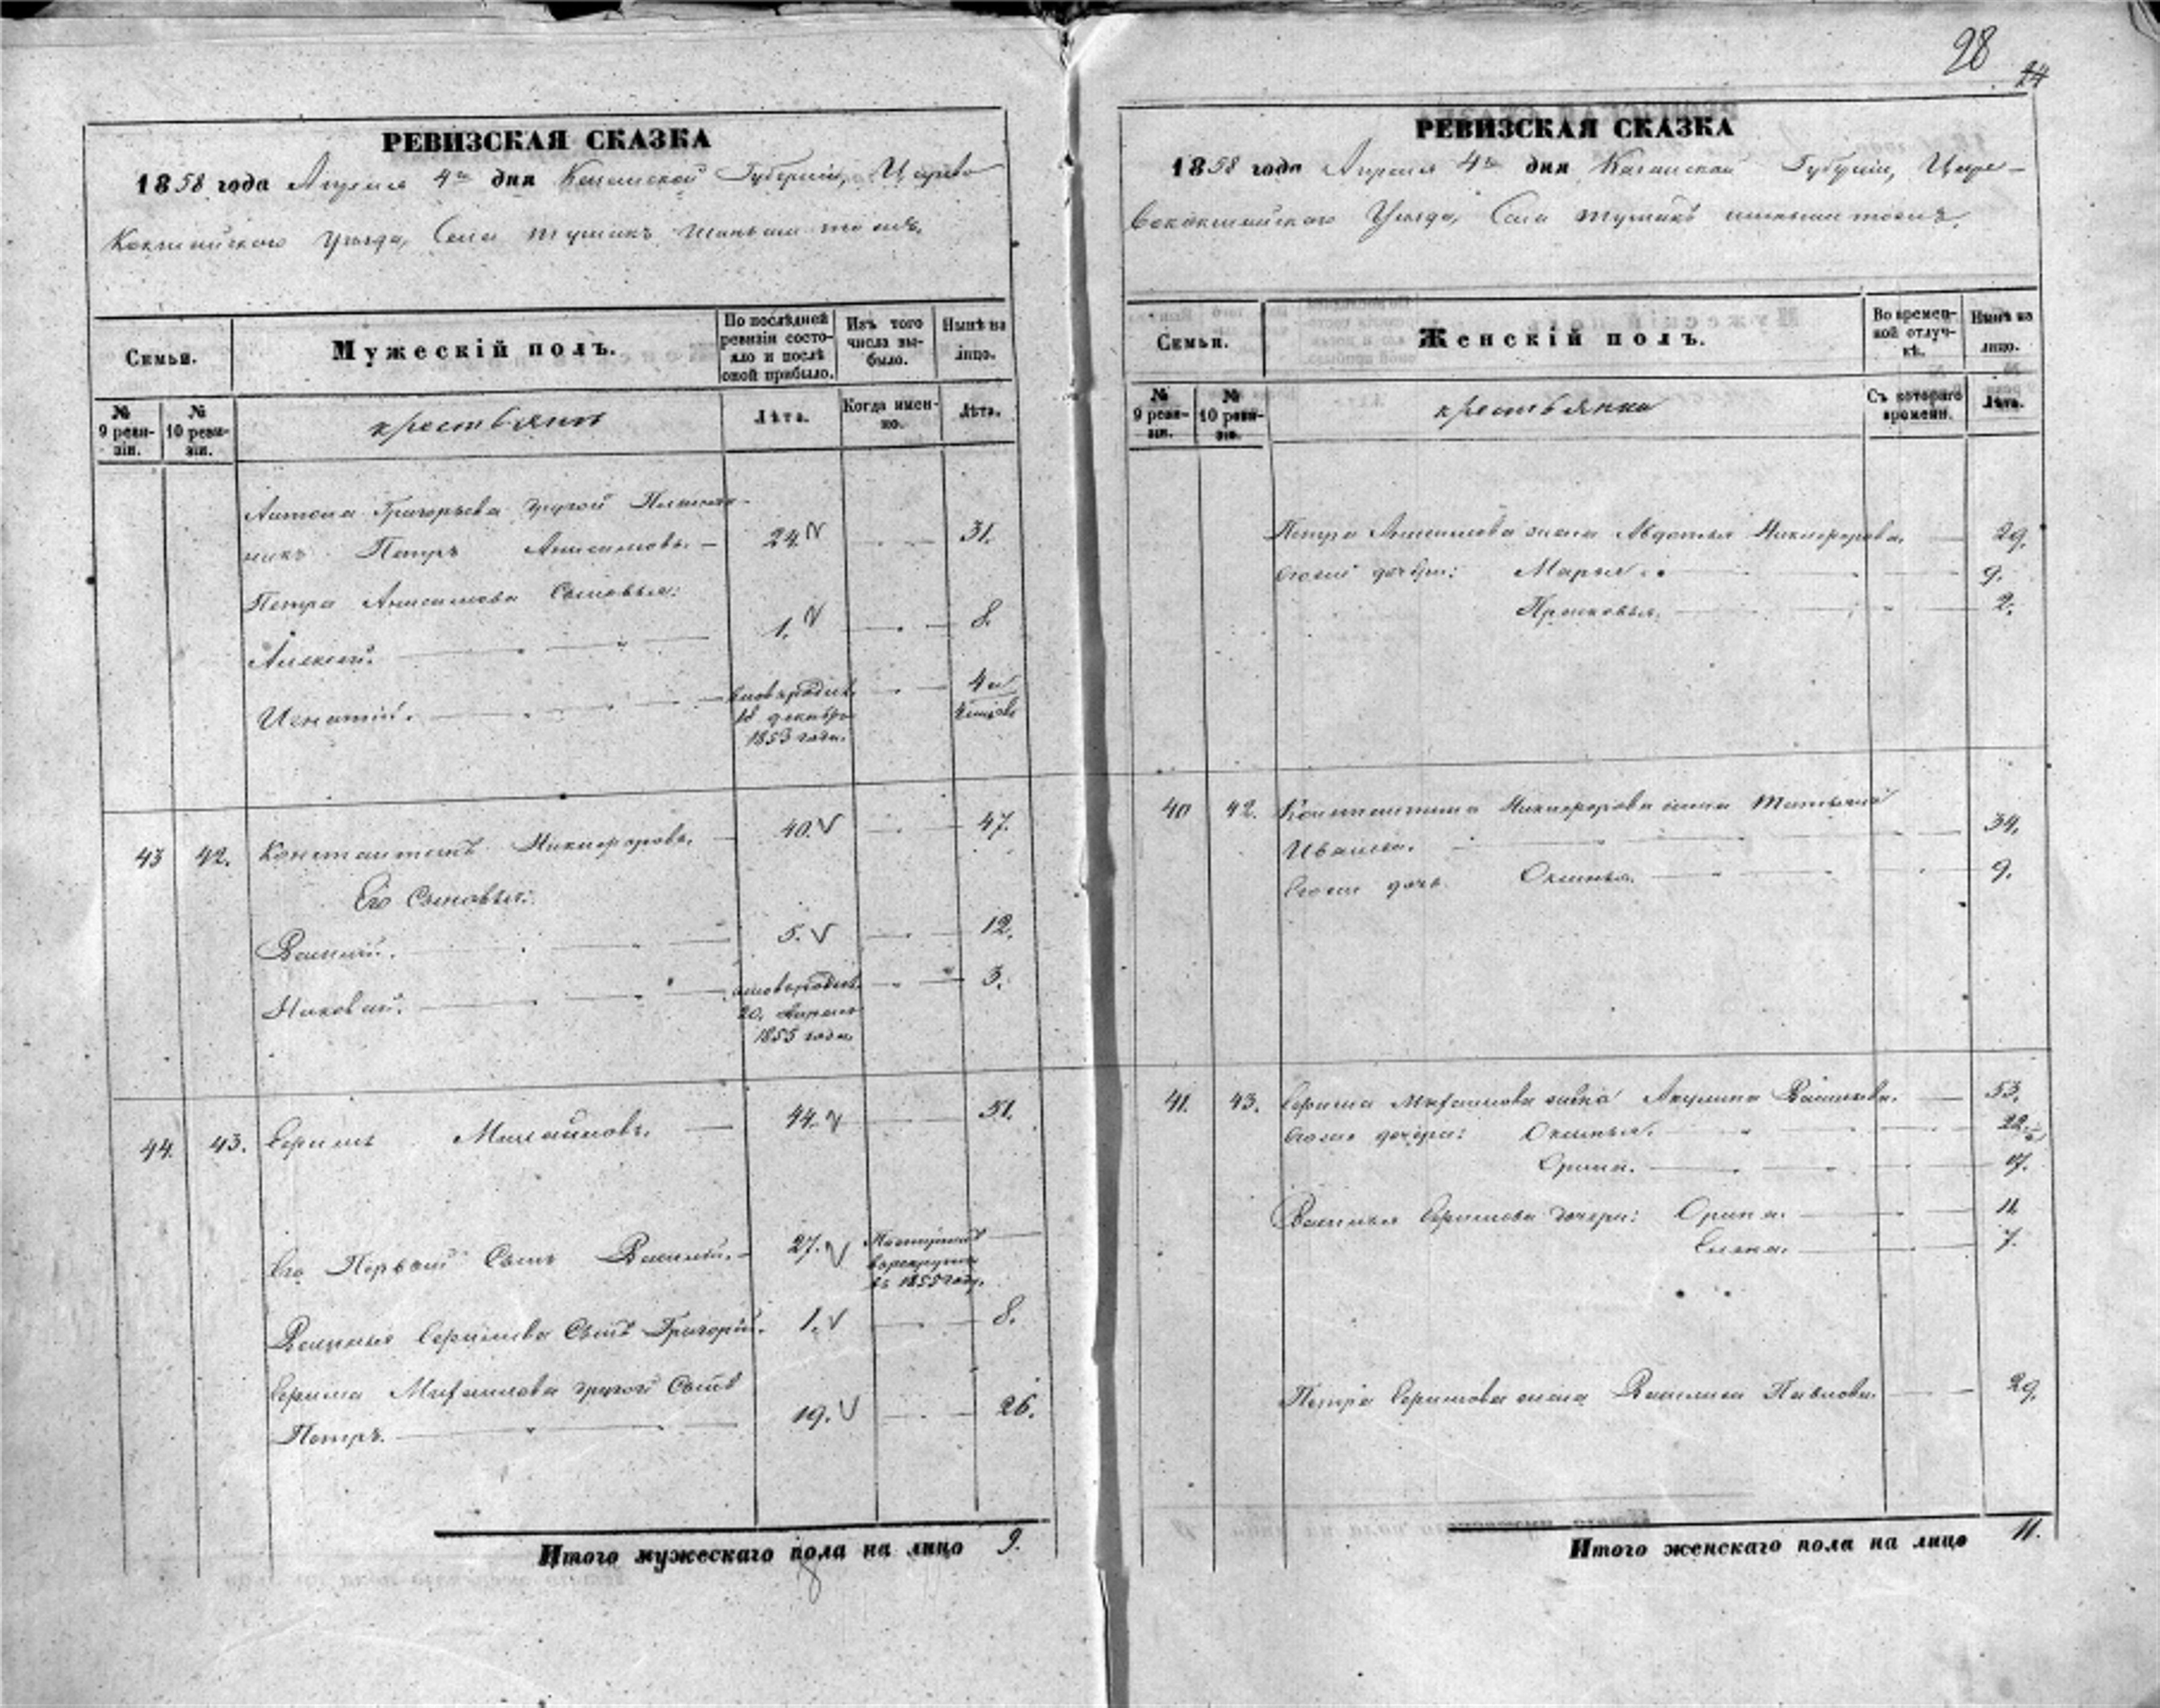 28
24
РЕВИЗСКАЯ СКАЗКА
1858 года Апреля 4го дня Казанской Губернiи, Царево
Кокшайскаго Уѣзда, Села
Семьи.
Мужескій полъ.
По послѣдней ревизіи состояло и послѣ оной прибыло.
Изъ того числа выбыло.
Нынѣ на лицо.
№ 9 ревизіи.
№ 10 ревизіи.
крестьянъ
Лѣта.
Когда именно.
Лѣта.
Антона Григорьева другой Племян-
никъ Петръ Анисимовъ — 24. 31.
Петра Анисимова Сыновья:
Алексей. 1. 8.
Игнатий. вновьродив. 4 и
18 декабря
1853 года.
43 42. Константинъ Никифоровъ. 40. 47.
Его Сыновья:
Василий. 5. 12.
Николай. вновьродив. 3.
20. Апреля
1855 года
44. 43. Ефимъ Михайловъ. 44. 51.
Его Первой Сынъ Василий. 27. Поступилъ
в рекруты
въ 1855 году.
Василья Ефимова Сынъ Григорiй. 1. 8.
Ефима Михаилова другой Сынъ
Петръ. 19. 26.
Итого мужескаго пола на лицо 9.
8
РЕВИЗСКАЯ СКАЗКА
1858 года Апреля 4го дня Казанской Губернiи, Царе-
вококшайскаго Уѣзда, Села
Семьи.
Женскій полъ.
Во временной отлучкѣ.
Нынѣ на лицо.
№ 9 ревизіи.
№ 10 ревизіи.
крестьянки
Съ котораго времени.
Лѣта.
Петра Анисимова жена Авдотья Никифорова. 29.
дочери: Марья. 9.
Прасковья. 2.
40 42. Константина Никифорова жена Татьяна
Иванова. 34.
дочь Оксинья. 9.
41. 43. Ефима Михаилова жена Акулина Васильева. 53.
дочери: Оксинья. 22.
Орина. 17.
Василья Ефимова дочери: Орина. 11.
Елена. 7.
Петра Ефимова жена Василиса Павлова. 29.
Итого женскаго пола на лицо 11.